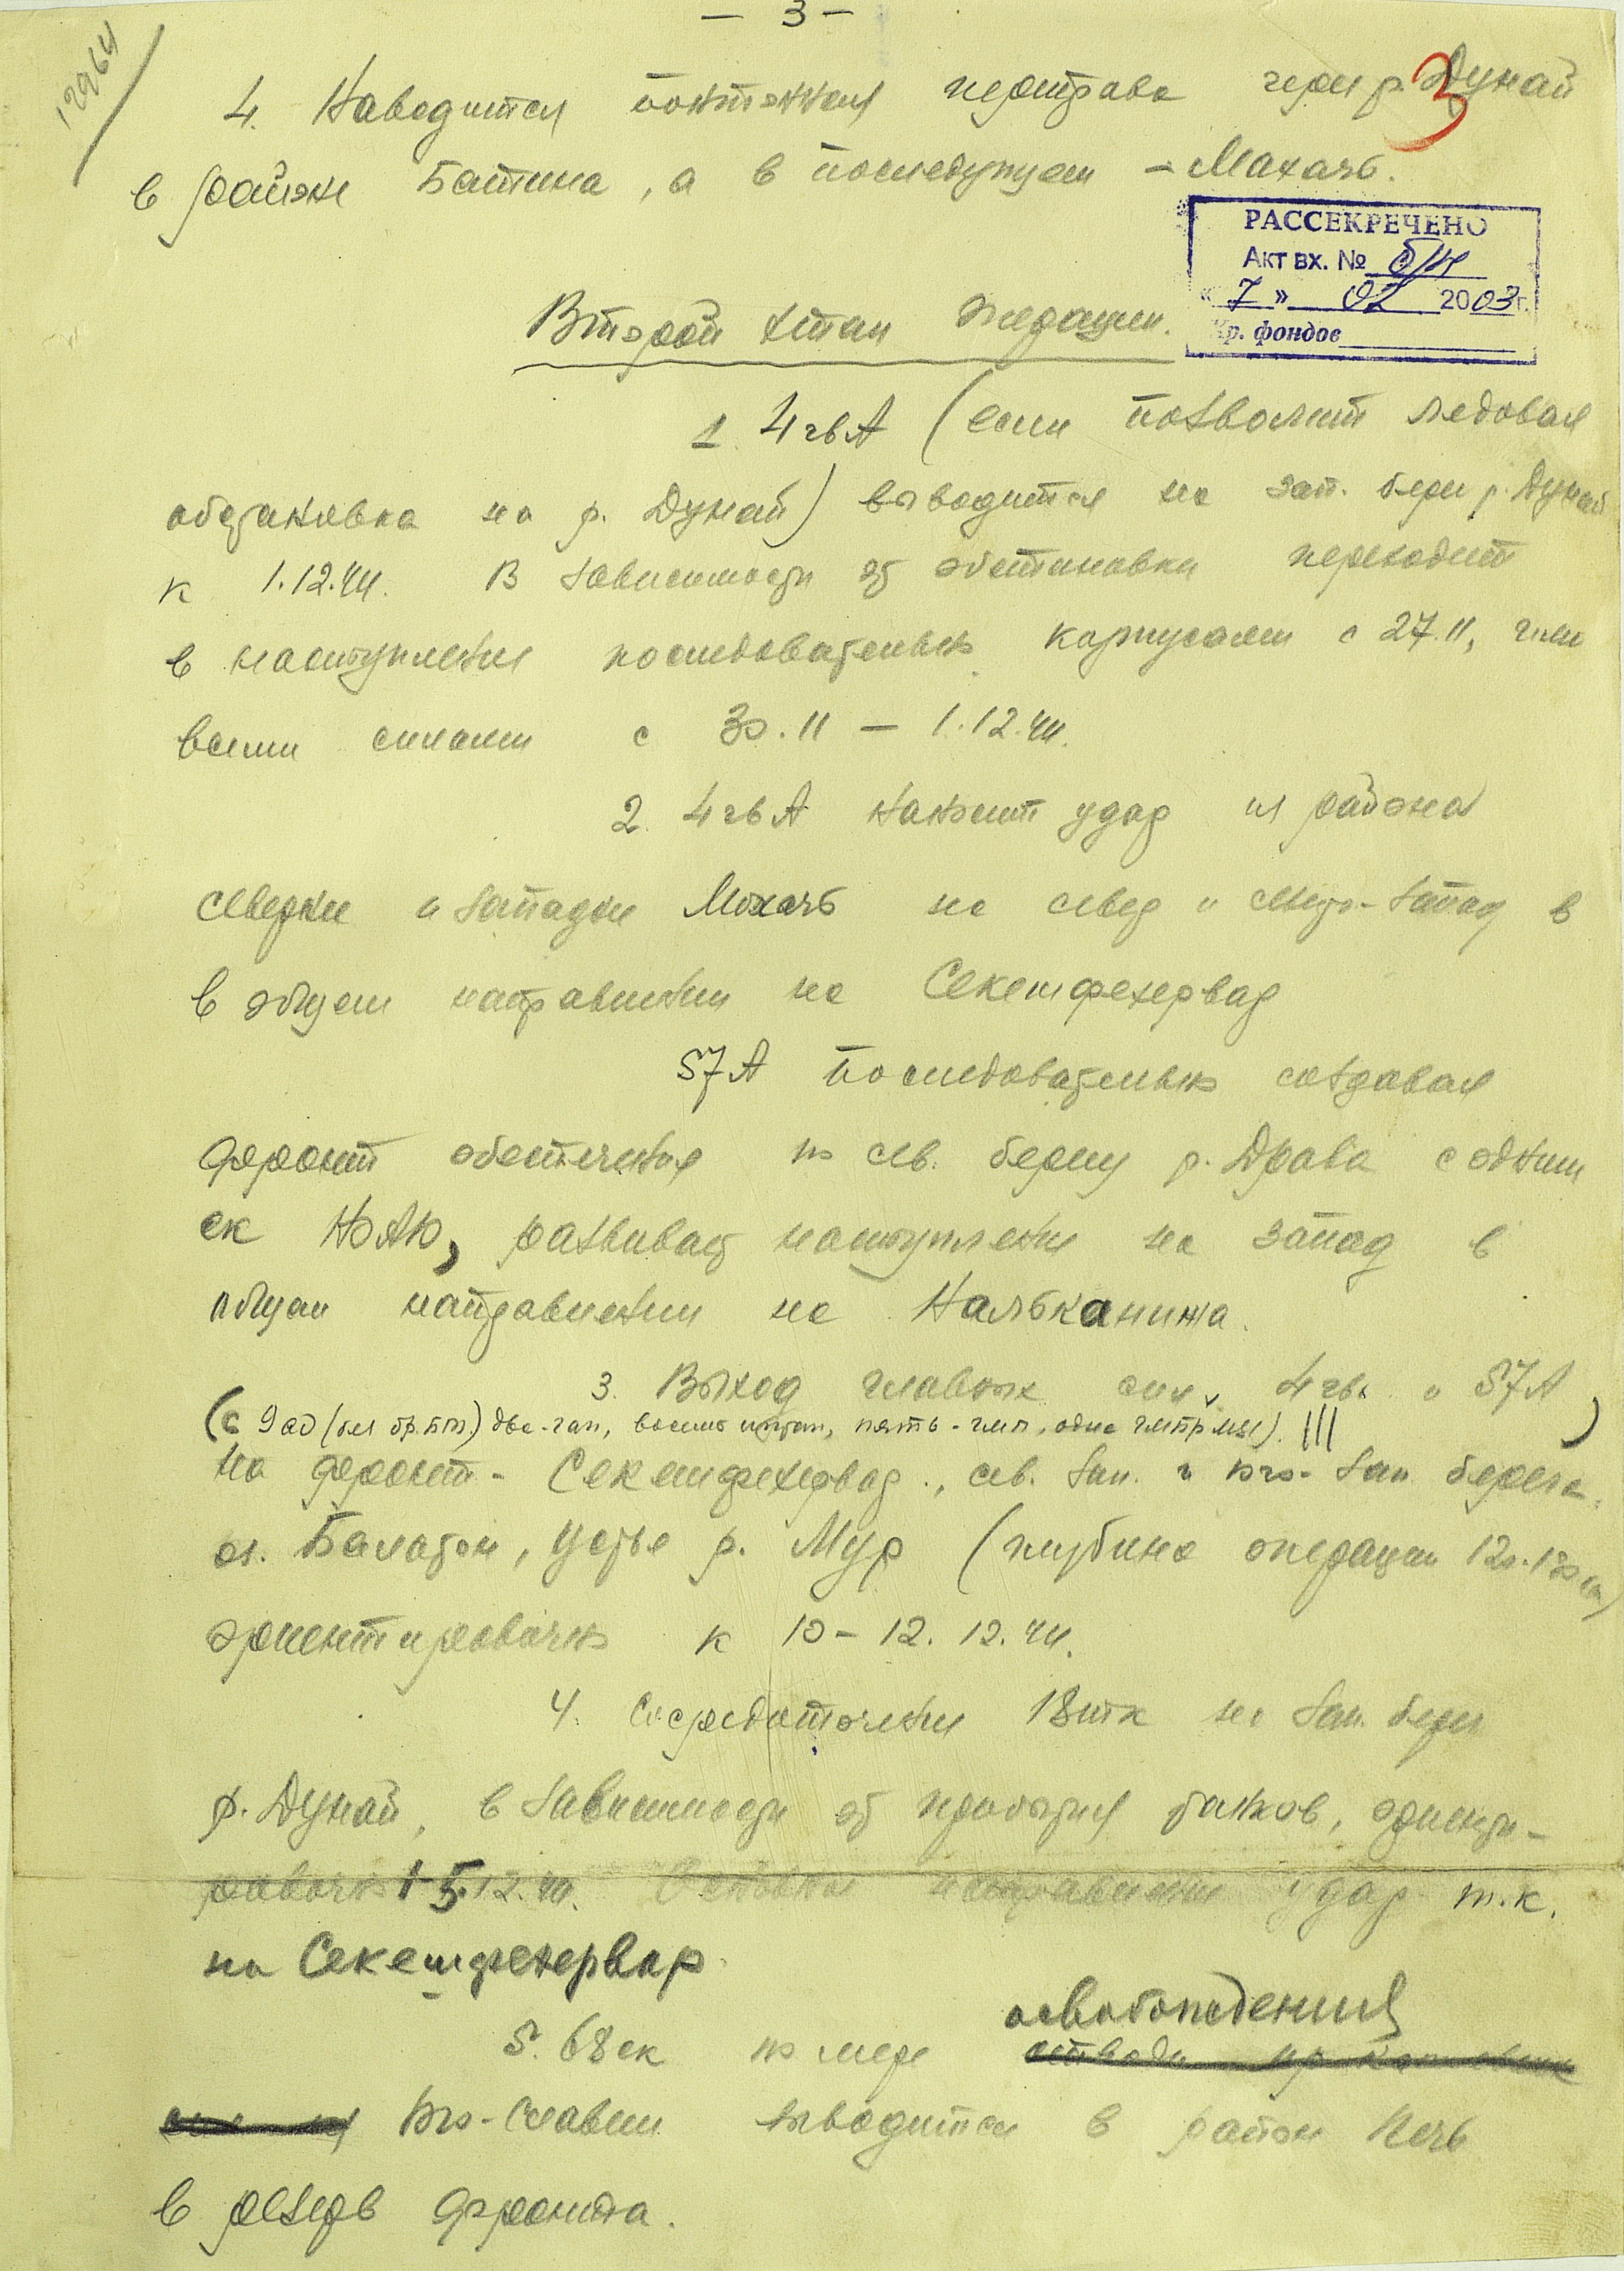 — 3 —
12964
3
4. Наводится понтонная переправа через р. Дунай
в районе Батина, а в последующем – Мохачь.
РАССЕКРЕЧЕНО
Акт вх. № б/н
« 7 » 02 2003 г.
Хр. фондов
Второй этап операции.
1. 4 гв А (если позволит ледовая
обстановка на р. Дунай) выводится на зап. берег р. Дунай
к 1.12.44. В зависимости от обстановки переходит
в наступление последовательно корпусами с 27.11, или
всеми силами с 30.11 – 1.12.44.
2. 4 гв А наносит удар из района
севернее и западнее Мохачь на север и северо-запад в
в общем направлении на Секешфехервар
57 А последовательно создавая
фронт обеспечения по сев. берегу р. Драва с одним
ск НОАЮ, развивает наступление на запад в
общем направлении на Надьканижа.
3. Выход главных сил 4 гв. и 57 А
(с 9 ад (без бр. БМ.) две-гап, восемь иптап, пять-гмп, одна гмбр М31). |||)
на фронт – Секешфехервар, сев. зап. и юго-зап. берега
оз. Балатон, устье р. Мур (глубина операции 120-130 км)
ориентировочно к 10 – 12. 12. 44.
4. Сосредоточение 18 тк на зап. берегу
р. Дунай, в зависимости от прибытия танков, ориенти-
ровочно 1-5.12.44. Основное направление удар т.к.
на Секешфехервар.
освобождения
5. 68 ск по мере
Юго-Славии выводится в район Печь
в резерв фронта.